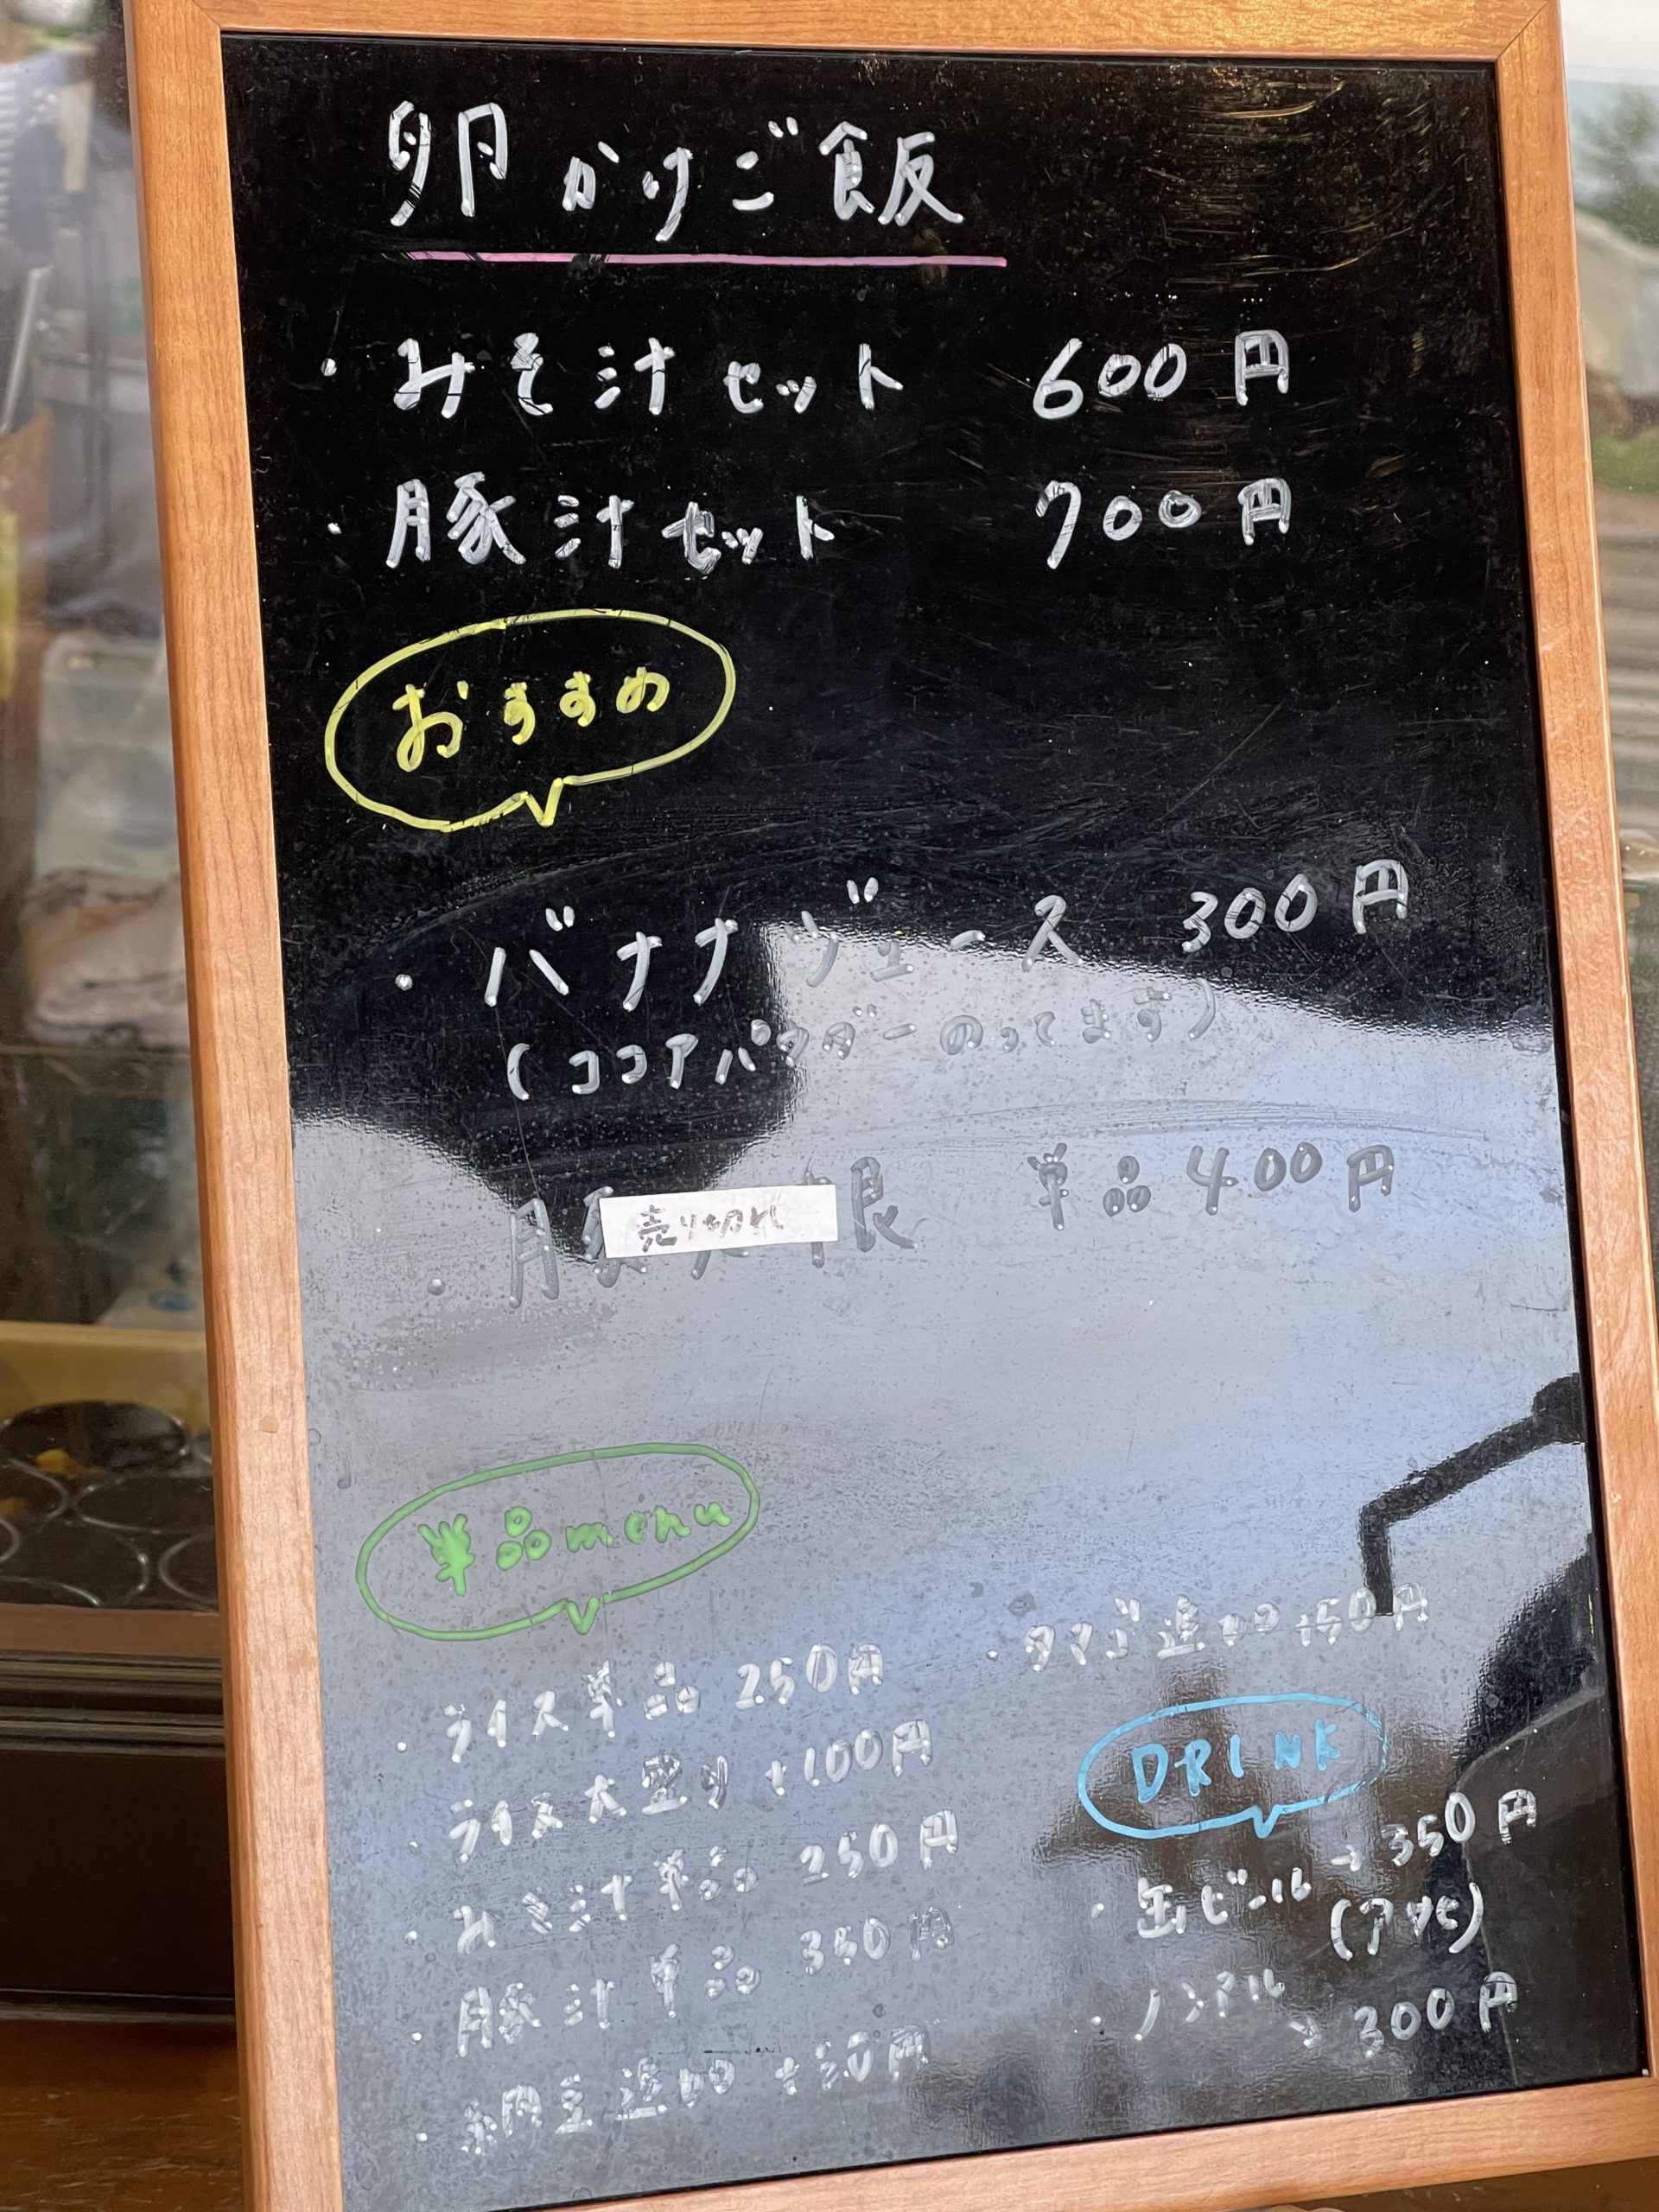 卵かけご飯
・みそ汁セット 600円
・豚汁セット 700円
おすすめ
・バナナジュース 300円
(ココアパウダーのってます)
・豚 売り切れ 根 単品400円
単品menu
・ライス単品 250円
・ライス大盛り +100円
・みそ汁単品 250円
・豚汁単品 350円
・納豆追加 +50円
・タマゴ追加 +50円
DRINK
・缶ビール→350円
(アサヒ)
・ノンアル
→300円